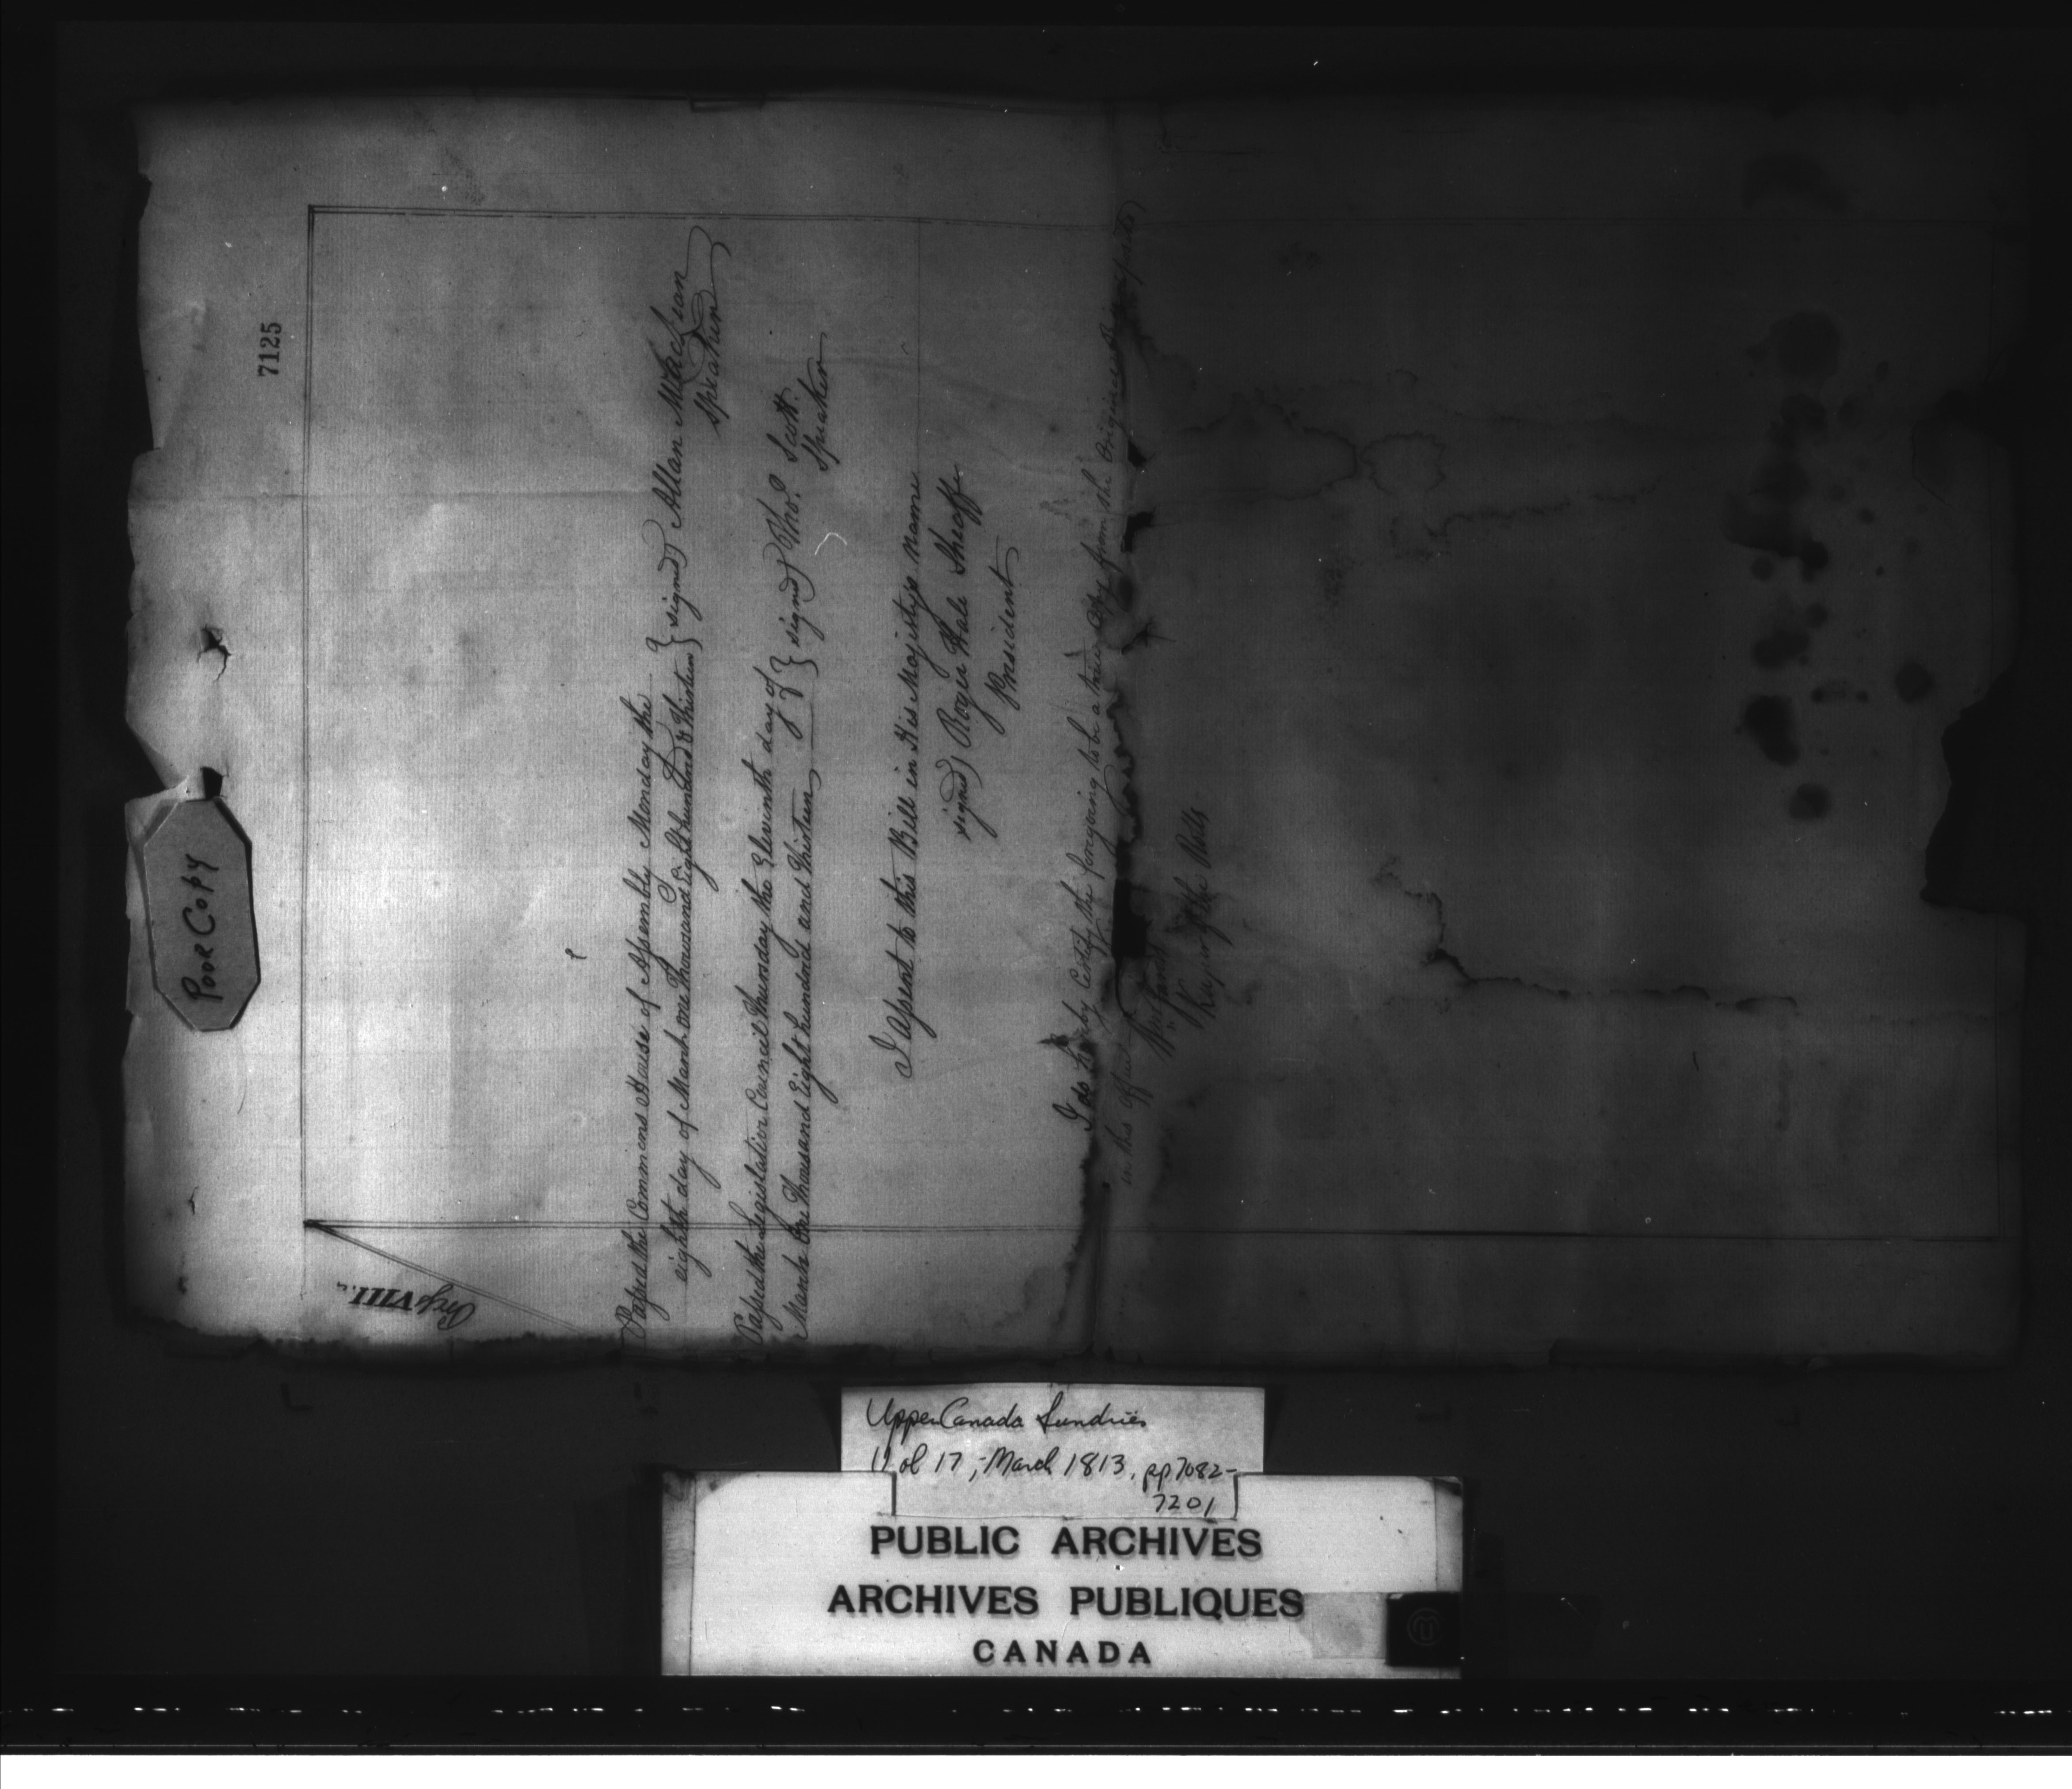 7125
POOR COPY
Page VIII.
Passed the Commons House of Assembly Monday the
eighth day of March one Thousand Eight hundred & Thirteen } signed) Allan MacLean
Speaker
Passed the Legislative Council Thursday the Eleventh day of
March One Thousand Eight hundred and Thirteen } signed) Thos. Scott.
Speaker
I assent to this Bill in His Majestys name
signed) Roger Hale Sheaffe
President
I do hereby Certify the foregoing to be a true Copy from the Original
in his office
Jarvis
of the Rolls
Upper Canada Sundries
Vol 17, - March 1813, pp 7082-
7201
PUBLIC ARCHIVES
ARCHIVES PUBLIQUES
CANADA